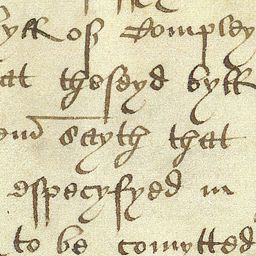 byll of Compley
at theseyd byll
end sayth that
especyfyed in
to be comytted